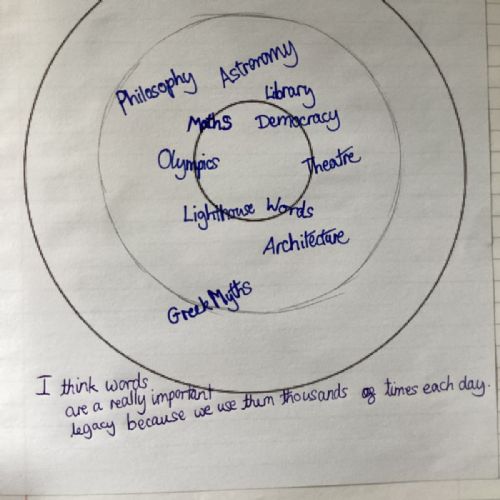 Philosophy
Astronomy
Library
Maths
Democracy
Olympics
Theatre
Lighthouse
Words
Architecture
Greek Myths
I think words
are a really important
legacy because we use them thousands of times each day.